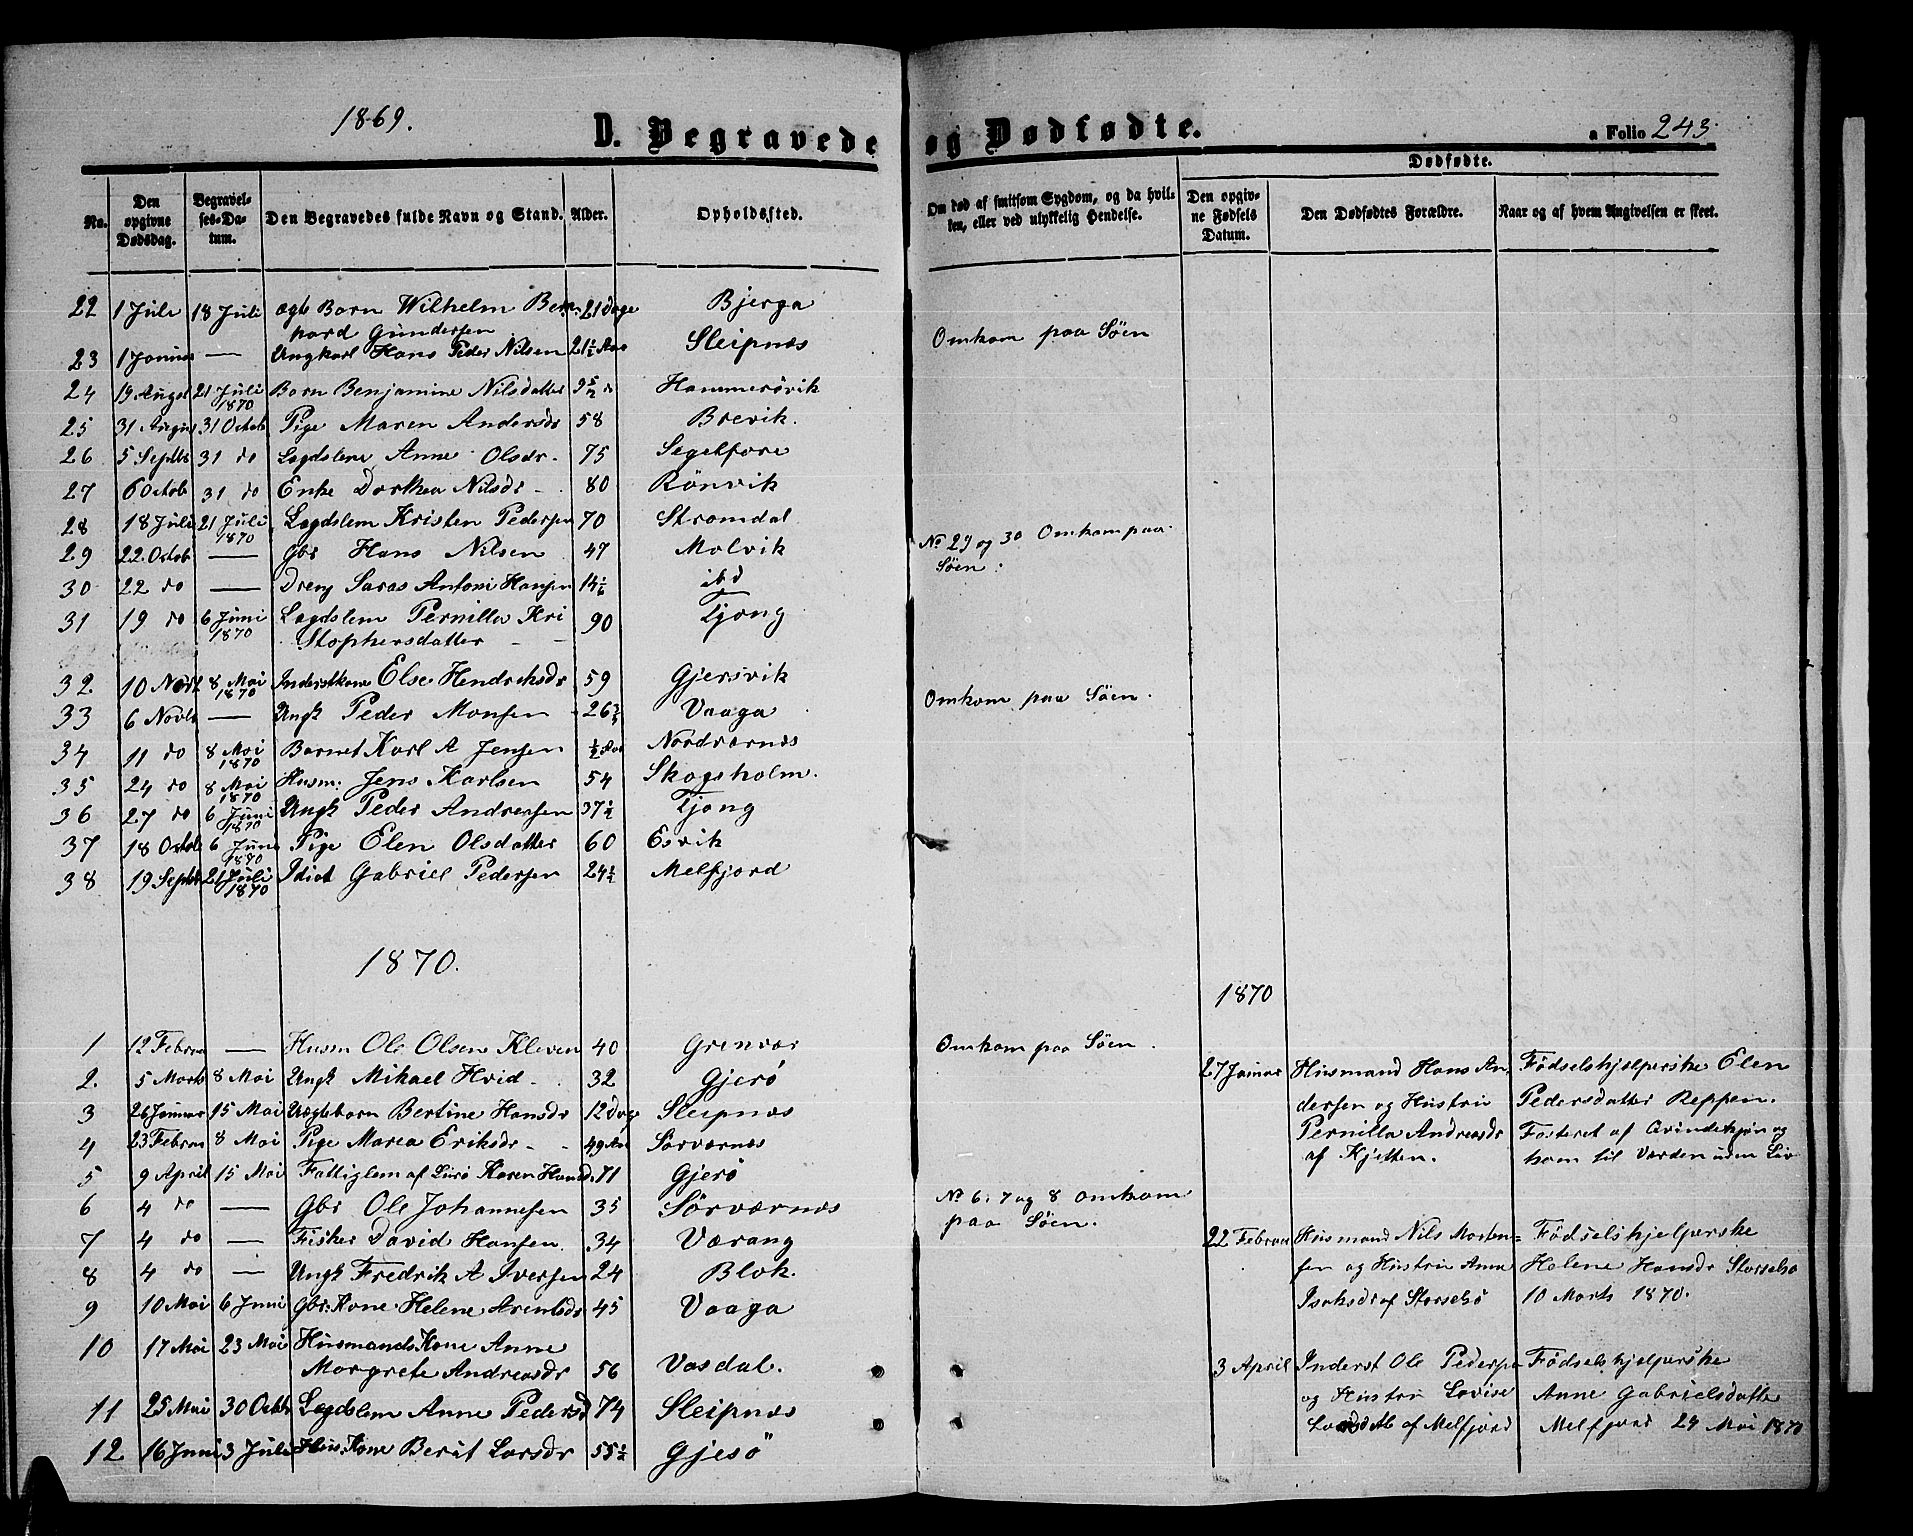 1869.
D. Begravede og Dødfødte.
a Folio 243.
No.
Den opgivne Dødsdag.
Begravelses-Datum.
Den Begravedes fulde Navn og Stand.
Alder.
Opholdssted.
Om død af smitsom Sygdom, og da hvilken, eller ved ulykkelig Hendelse.
Dødfødte.
Den opgivne Fødsels Datum.
Den Dødfødtes Forældre.
Naar og af hvem Angivelsen er skeet.
22 1 Juli 18 Juli ægb Barn Wilhelm Bern 21 Dage Bjerga
hard Gundersen
23 1 Januar — Ungkarl Hans Peder Nilsen 21½ Aar Sleipnæs Omkom paa Söen
24 19 Augst 21 Juli 1870 Barn Benjamine Nilsdatter Hammersvik
25 31 August 31 Octob Pige Maren Andersdr 58 Brevik.
26 5 Septbr 31 do Lægdslem Anne Olsdr. 75 Segelfore
27 6 Octob 31 do Enke Dorthea Nilsdr - 80 Rönvik
28 18 Juli 21 Juli 1870 Lægdslem Kristen Pedersen 70 Stromdal
29 22 Octob — Gbr Hans Nilsen 47 Molvik No 29 og 30 Omkom paa
Söen.
30 22 do — Dreng Saras Antoni Hansen ibd
31 19 do 6 Juni 1870 Lægdslem Pernilla Kri 90 Tjong
Stophersdatter
32. 10 Novb 8 Mai 1870 Inderstkone Else Hendriksdr 59 Gjersvik
33 6 Novb — Ungk Peder Monsen 26 Vaaga Omkom paa Söen.
34 11 do 8 Mai 1870 Barnet Karl A Jensen ½ Aar Nordværnæs
35 24 do 8 Mai 1870 Husm: Jens Karlsen 54 Skogsholm.
36 27 do 6 Juni 1870 Ungk Peder Andreasen 37½ Tjong
37 18 Octob 6 Juni 1870 Pige Elen Olsdatter 60 Esvik
38 19 Septbr 21 Juli 1870 Idiot Gabriel Pedersen 24½ Melfjord
1870.
1870
1 12 Februar — Husm Ole Olsen Kleven 40 Grenvær Omkom paa Söen.
2. 5 Marts 8 Mai Ungk Mikael Hvid 32 Gjerø
3 26 Januar 15 Mai Uægtebarn Bertine Hansdr 12 Dage Sleipnæs
4 23 Februar 8 Mai Pige Marea Eriksdr 49 Aar Sörværnæs
5 9 April 15 Mai Fattiglem af Lurö Karen Hansd. 71 Gjerö
6 4 do — Gbr Ole Johannesen 35 Sörværnæs No 6, 7 og 8 omkom
paa Söen.
7 4 do — Fisker David Hansen. 34 Værang
8 4 do — Ungk Fredrik A Iversen 24 Blok.
9 10 Mai 6 Juni Gbr: Kone Helene Arentsdr 45 Vaaga
10 17 Mai 23 Mai Husmands Kone Anne
Margrete Andreasdr 56 Vasdal.
11 25 Mai 30 Octbr Lægdslem Anne Pedersd 74 Sleipnæs
12 16 Juni 3 Juli Hus Kone Berit Larsdr 55½ Gjesö
27 Januar Husmand Hans An- Födselshjelperske Elen
dersen og Hustru Pedersdatter Reppen.
Pernilla Andreasdr Fosteret af Qvindekjön og
af Kjetten. kom til Verden uden Liv
22 Februar Husmand Nils Morten= Födselshjelperske
sen og Hustru Anna Helene Hansdr Storselsö
Isaksdr af Storselsö 10 Marts 1870.
3 April Inderst Ole Peders Födselshjelperske
og Hustru Lovise Anne Gabrielsdatter
af Melfjord Melfjord 29 Mai 1870